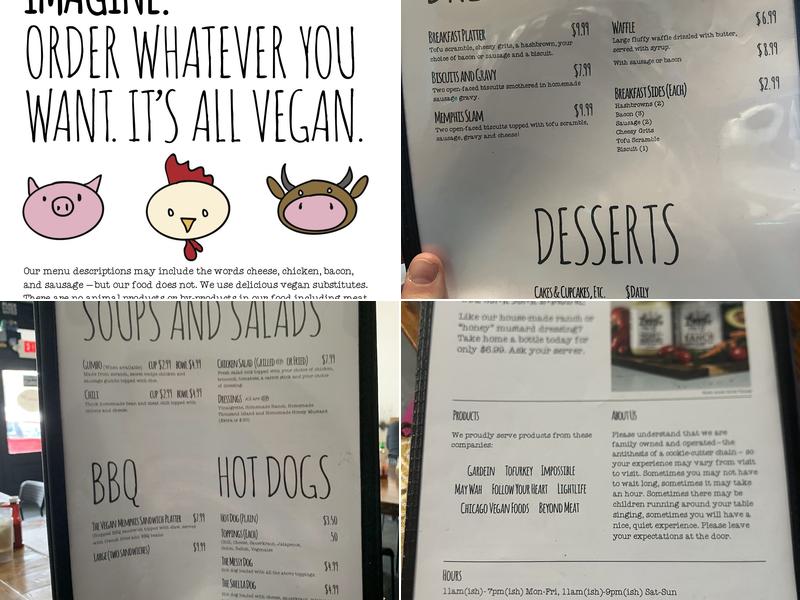 IMAGINE.
ORDER WHATEVER YOU
WANT. IT'S ALL VEGAN.
Our menu descriptions may include the words cheese, chicken, bacon,
and sausage — but our food does not. We use delicious vegan substitutes.
There are no animal products or by-products in our food including meat,
BREAKFAST PLATTER $9.99
Tofu scramble, cheesy grits, a hashbrown, your
choice of bacon or sausage and a biscuit.
BISCUITS AND GRAVY $7.99
Two open-faced biscuits smothered in homemade
sausage gravy.
MEMPHIS SLAM $9.99
Two open-faced biscuits topped with tofu scramble,
sausage, gravy and cheese!
WAFFLE $6.99
Large fluffy waffle drizzled with butter,
served with syrup.
With sausage or bacon $8.99
BREAKFAST SIDES (EACH) $2.99
Hashbrowns (2)
Bacon (3)
Sausage (2)
Cheesy Grits
Tofu Scramble
Biscuit (1)
DESSERTS
CAKES & CUPCAKES, ETC. $DAILY
SOUPS AND SALADS
GUMBO (When available) CUP $2.99 BOWL $4.99
Made from scratch, sauce vegan chicken and
sausage gumbo topped with rice.
CHILI CUP $2.99 BOWL $4.99
Thick homemade bean and meat chili topped with
onions and cheese.
CHICKEN SALAD (GRILLED OR FRIED) $7.99
Fresh salad topped with your choice of chicken,
broccoli, tomatoes, a carrot stick and your choice
of dressing.
DRESSINGS
Vinaigrette, Homemade Ranch, Homemade
Thousand Island and Homemade Honey Mustard
BBQ
THE VEGAN MEMPHIS SANDWICH PLATTER $7.99
Chopped BBQ sandwich topped with slaw, served
with French fries and BBQ beans
LARGE (TWO SANDWICHES) $9.99
HOT DOGS
HOT DOG (PLAIN) $3.50
TOPPINGS (EACH) .50
Chili, cheese, Sauerkraut, Jalapenos,
Onion, Relish, Vegenaise
THE MESSY DOG $4.99
Hot dog loaded with all the above toppings.
THE SHELIA DOG $4.99
Like our house-made ranch or
"honey" mustard dressing?
Take home a bottle today for
only $6.99. Ask your server.
PRODUCTS
We proudly serve products from these
companies:
GARDEIN TOFURKEY IMPOSSIBLE
MAY WAH FOLLOW YOUR HEART LIGHTLIFE
CHICAGO VEGAN FOODS BEYOND MEAT
ABOUT US
Please understand that we are
family owned and operated—the
antithesis of a cookie-cutter chain — so
your experience may vary from visit
to visit. Sometimes you may not have
to wait long, sometimes it may take
an hour. Sometimes there may be
children running around your table
singing, sometimes you will have a
nice, quiet experience. Please leave
your expectations at the door.
HOURS
11am(ish)-7pm(ish) Mon-Fri, 11am(ish)-9pm(ish) Sat-Sun